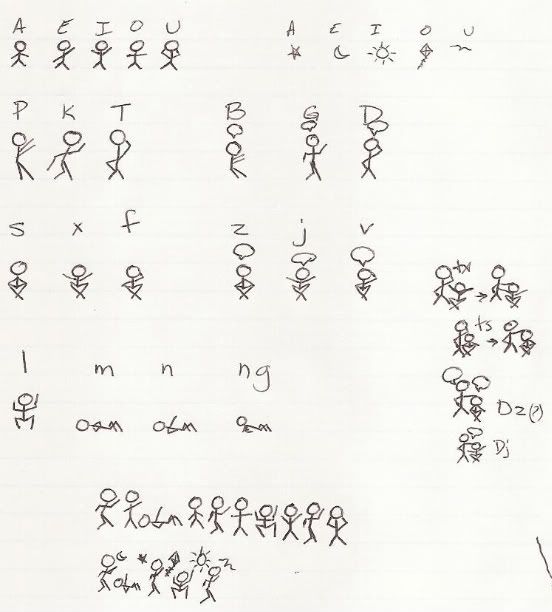 A E I O U A E I O U
P K T B G D
s x f z j v
tx
ts
l m n ng
Dz(?)
Dj